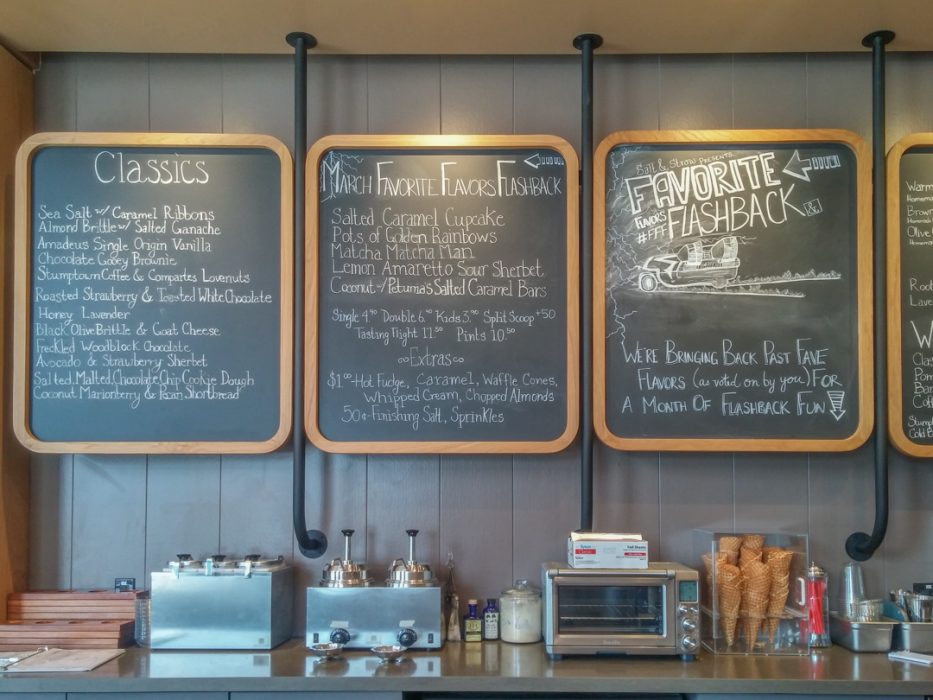 Classics
Sea Salt w/ Caramel Ribbons
Almond Brittle w/ Salted Ganache
Amadeus Single Origin Vanilla
Chocolate Gooey Brownie
Stumptown Coffee & Compartes Lovenuts
Roasted Strawberry & Toasted White Chocolate
Honey Lavender
Black Olive Brittle & Goat Cheese
Freckled Woodblock Chocolate
Avocado & Strawberry Sherbet
Salted, Malted, Chocolate Chip Cookie Dough
Coconut Marionberry & Pecan Shortbread
March Favorite Flavors Flashback
Salted Caramel Cupcake
Pots of Golden Rainbows
Matcha Matcha Man
Lemon Amaretto Sour Sherbet
Coconut w/ Petunia's Salted Caramel Bars
Single 4.90 Double 6.90 Kids 3.90 Split Scoop +50
Tasting Flight 11.50 Pints 10.50
Extras
$1.00 - Hot Fudge, Caramel, Waffle Cones,
Whipped Cream, Chopped Almonds
50¢ - Finishing Salt, Sprinkles
Salt & Straw Presents
Favorite
Flavors
#FFF Flashback
We're Bringing Back Past Fave
Flavors (as voted on by you) For
A Month Of Flashback Fun
Warm
Brown
Olive
Root
Lave
W
Clas
Pom
Bar
Coff
Stumpt
Cold B